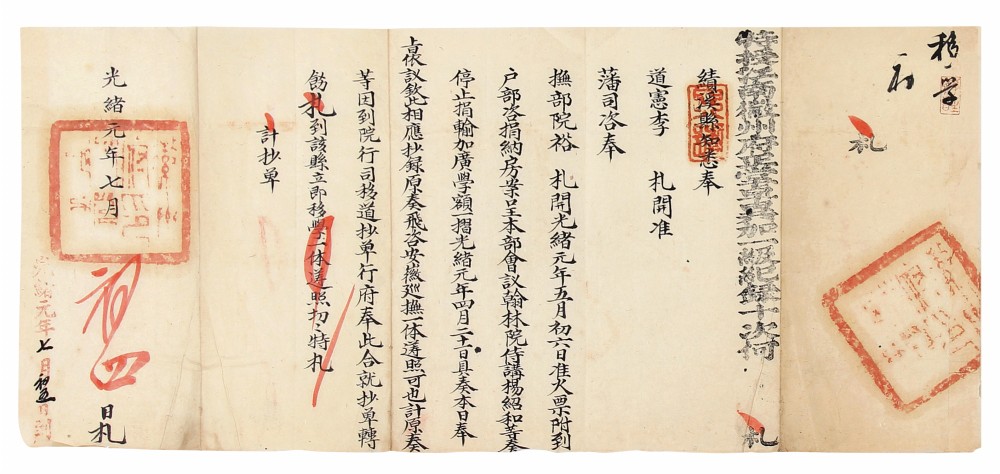 移学
札
特授江南徽州府正堂加一級紀録十次何
札
績溪縣知悉奉
道憲李　札開准
藩司咨奉
撫部院裕　札開光緒元年五月初六日准火票附到
户部咨捐納房案呈本部會議翰林院侍講楊紹和等奏
停止捐輸加廣學額一摺光緒元年四月二十二日具奏本日奉
旨依議欽此相應抄録原奏飛咨安徽廵撫一体遵照可也計原奏
等因到院行司移道抄單行府奉此合就抄單轉
飭札到該縣立即移學一体遵照切〻特札
計抄單
光緒元年七月
初四
日札
光緒元年七月初五日到